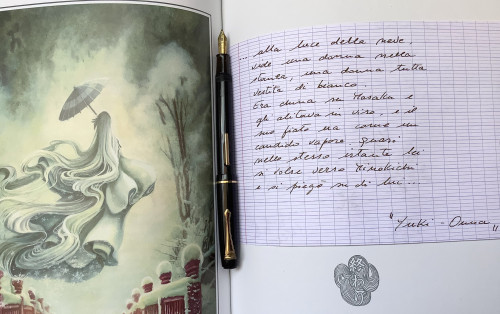 ... alla luce della neve,
vide una donna nella
stanza, una donna tutta
vestita di bianco.
Era china su Mosaku e
gli alitava in viso, e il
suo fiato era come un
candido vapore. Quasi
nello stesso istante lei
si volse verso Minokichi
e si piegò su di lui...
"Yuki-Onna"
終わり